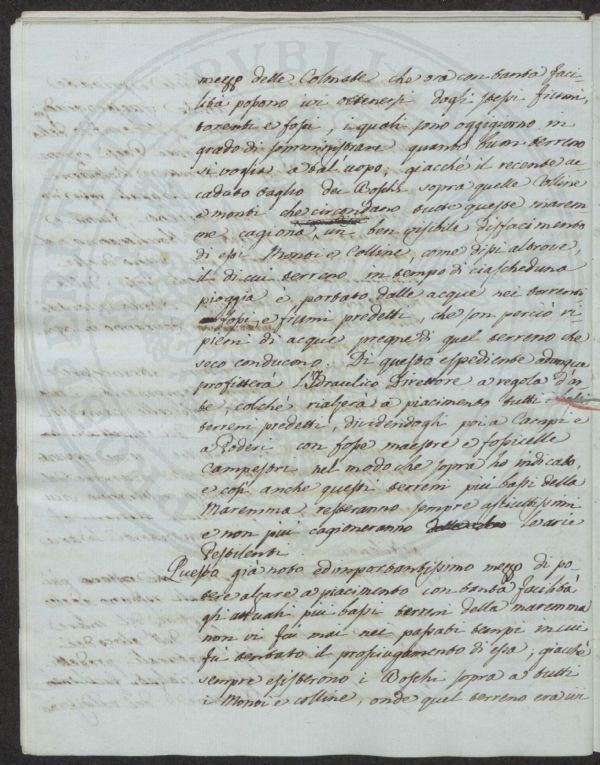 mezzo delle Colmate che ora con tanta faci-
lità possono ivi ottenersi dagli stessi fiumi,
torrenti e fossi, i quali sono oggigiorno in
grado di somministrare quanto buon terreno
si voglia a tal'uopo; giacchè il recente ac-
caduto taglio dei Boschi sopra quelle Colline
e monti che circondano tutte queste marem-
me cagiona un ben visibile disfacimento
di essi Monti e Colline, come dissi altrove,
il di cui terreno in tempo di ciascheduna
pioggia è portato dalle acque nei torrenti
fossi e fiumi predetti, che son perciò ri-
pieni di acque pregne di quel terreno che
seco conducono. Di questo espediente adunque
profitterà l'Idraulico Direttore a regola d'ar-
te, colchè rialzerà a piacimento tutti
terreni predetti, dividendogli poi a Campi e
a Poderi con fosse maestre e fossicelle
campestri nel modo che sopra ho indicato,
e così anche questi terreni più bassi della
Maremma resteranno sempre asciuttissimi
e non più cagioneranno le arie
Pestilenti.
Questo già noto ed importantissimo mezzo di po-
tere alzare a piacimento con tanta facilità
gli attuali più bassi terreni della maremma
non vi fu mai nei passati tempi in cui
fù tentato il prosciugamento di essa, giacchè
sempre esisterono i Boschi sopra a tutti
i Monti e colline, onde quel terreno era ivi
PROPRIETÀ PUBBLICA